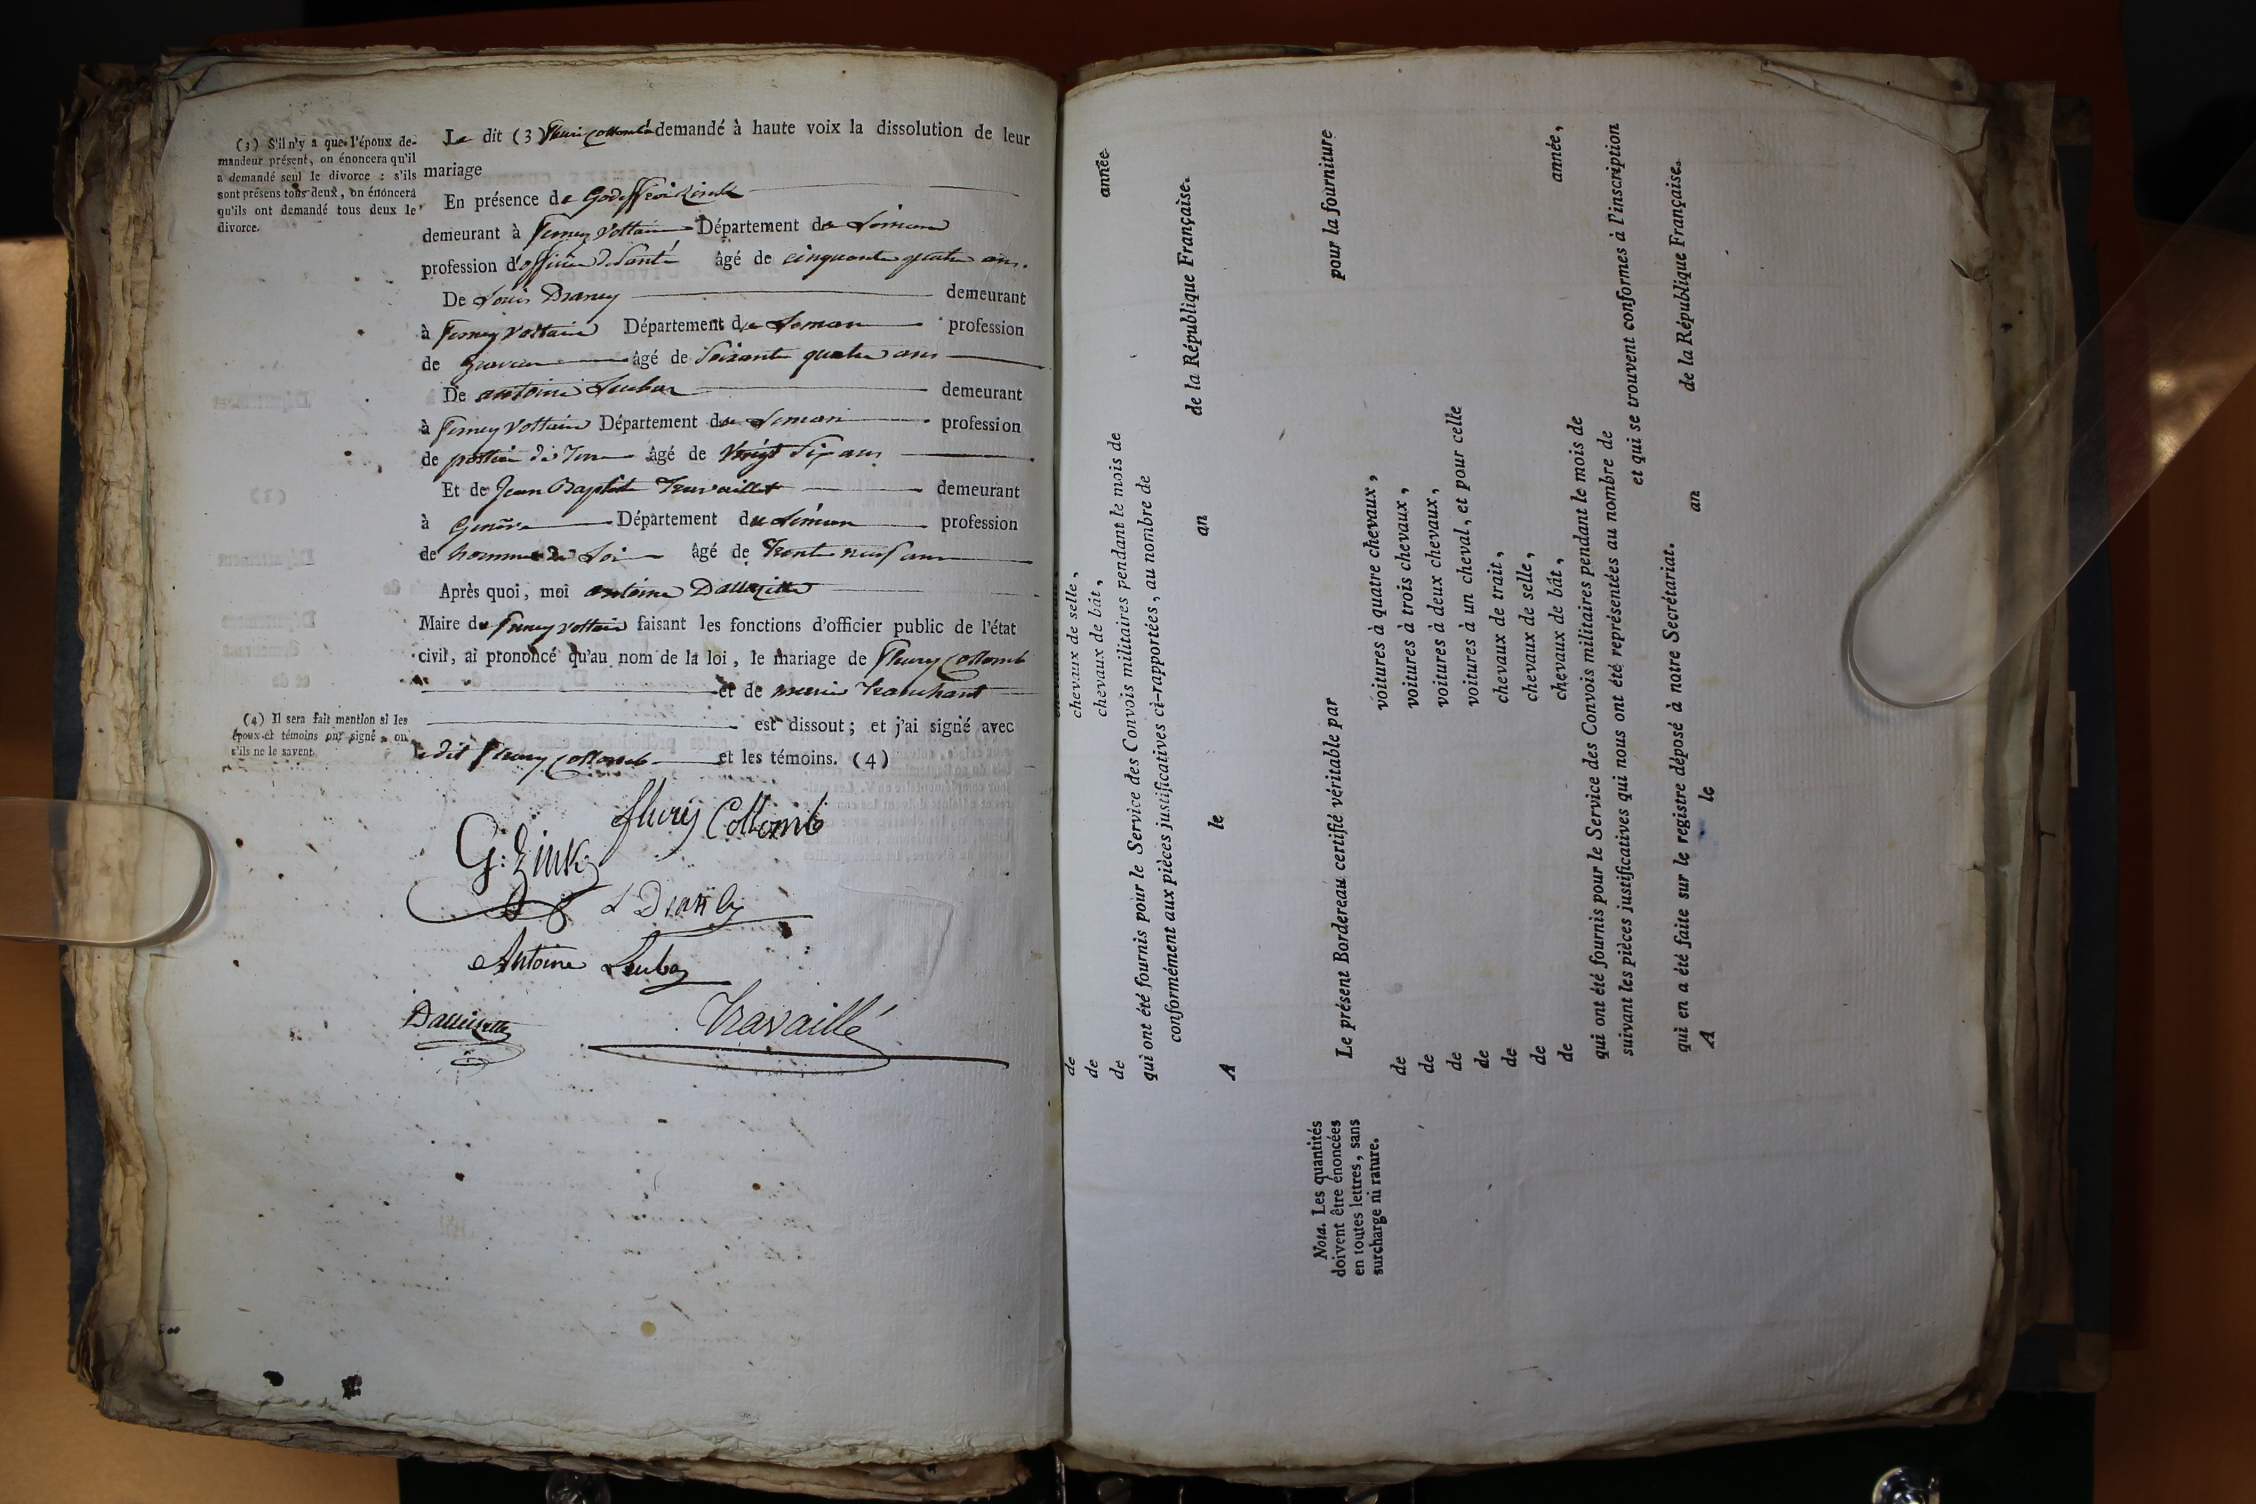 (3) S'il n'y a que l'époux de-
mandeur présent, on énoncera qu'il
a demandé seul le divorce : s'ils
sont présens tous deux, on énoncera
qu'ils ont demandé tous deux le
divorce.
Le dit (3) fleuri Collomb a demandé à haute voix la dissolution de leur
mariage
En présence de Godeffroi Zink
demeurant à ferney voltaire Département du Léman
profession d'officier de Santé âgé de cinquante quatre ans.
De Louis Dianey demeurant
à ferney voltaire Département du Leman profession
de âgé de Soixante quatre ans
De antoine Leuba demeurant
à ferney voltaire Département du Leman profession
de potier de Terre âgé de Vingt Six ans
Et de Jean Baptiste Travaillet demeurant
à Genêve Département du Léman profession
de homme de Loi âgé de Trente neuf ans
Après quoi, moi antoine Dallizette
Maire de ferney voltaire faisant les fonctions d'officier public de l'état
civil, ai prononcé qu'au nom de la loi, le mariage de fleury Collomb
et de merie Tranchant
est dissout ; et j'ai signé avec
(4) Il sera fait mention si les
époux et témoins ont signé, ou
s'ils ne le savent.
le dit fleury Collomb et les témoins. (4)
fleury Collomb
G: Zink
L Dianey
Antoine Leuba
Dallizette
Travaillé
de chevaux de selle,
de chevaux de bât,
de
qui ont été fournis pour le Service des Convois militaires pendant le mois de année
conformément aux pièces justificatives ci-rapportées, au nombre de
A le an de la République Française.
Nota. Les quantités
doivent être énoncées
en toutes lettres, sans
surcharge ni rature.
Le présent Bordereau certifié véritable par pour la fourniture
de voitures à quatre chevaux,
de voitures à trois chevaux,
de voitures à deux chevaux,
de voitures à un cheval, et pour celle
de chevaux de trait,
de chevaux de selle,
de chevaux de bât,
qui ont été fournis pour le Service des Convois militaires pendant le mois de année,
suivant les pièces justificatives qui nous ont été représentées au nombre de
et qui se trouvent conformes à l'inscription
qui en a été faite sur le registre déposé à notre Secrétariat.
A le an de la République Française.